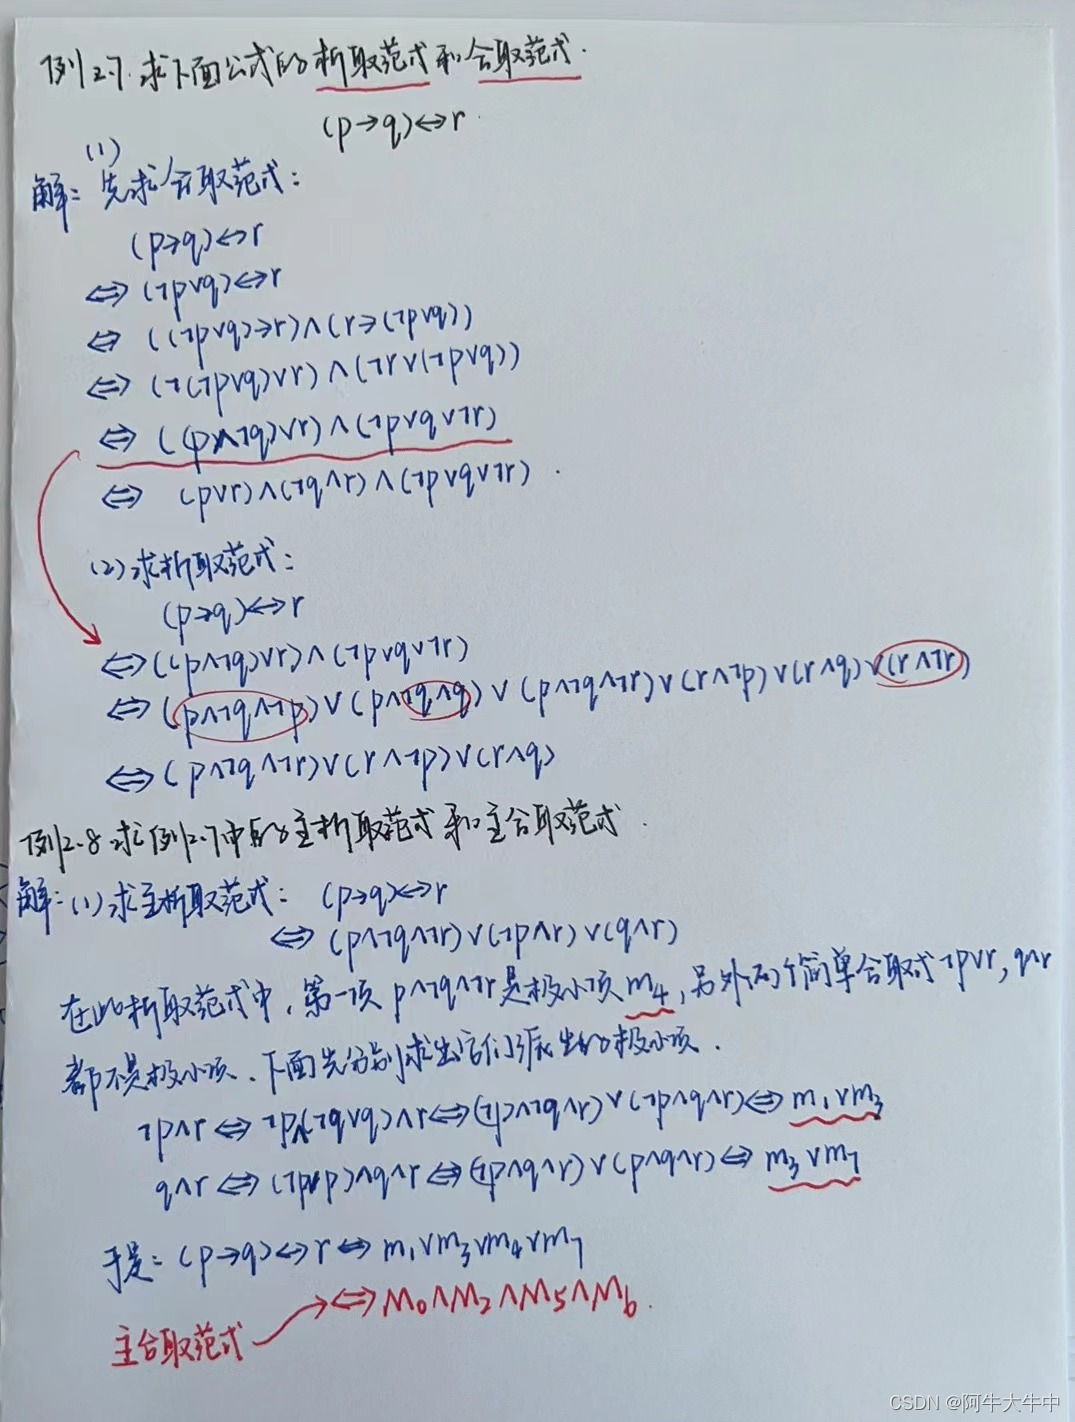 例2.7. 求下面公式的析取范式和合取范式.
(p→q)↔r.
(1)
解: 先求合取范式:
(p→q)↔r
⇔ (¬p∨q)↔r
⇔ ((¬p∨q)→r)∧(r→(¬p∨q))
⇔ (¬(¬p∨q)∨r)∧(¬r∨(¬p∨q))
⇔ ((p∧¬q)∨r)∧(¬p∨q∨¬r)
⇔ (p∨r)∧(¬q∧r)∧(¬p∨q∨¬r).
(2)求析取范式:
(p→q)↔r
⇔((p∧¬q)∨r)∧(¬p∨q∨¬r)
⇔(p∧¬q∧¬p)∨(p∧¬q∧q)∨(p∧¬q∧¬r)∨(r∧¬p)∨(r∧q)∨(r∧¬r)
⇔(p∧¬q∧¬r)∨(r∧¬p)∨(r∧q)
例2.8 求例2.7中的主析取范式和主合取范式.
解:(1)求主析取范式: (p→q)↔r
⇔ (p∧¬q∧¬r)∨(¬p∧r)∨(q∧r)
在此析取范式中,第一项 p∧¬q∧¬r是极小项m₄,另外两个简单合取式¬p∨r, q∧r
都不是极小项、下面先分别求出它们派生的极小项.
¬p∧r ⇔ ¬p∧(¬q∨q)∧r⇔(¬p∧¬q∧r)∨(¬p∧q∧r)⇔ m₁∨m₃
q∧r ⇔ (¬p∨p)∧q∧r ⇔(¬p∧q∧r)∨(p∧q∧r) ⇔ m₃∨m₇
于是: (p→q)↔r ⇔ m₁∨m₃∨m₄∨m₇
⇔ M₀∧M₂∧M₅∧M₆.
主合取范式
CSDN @阿牛大牛中